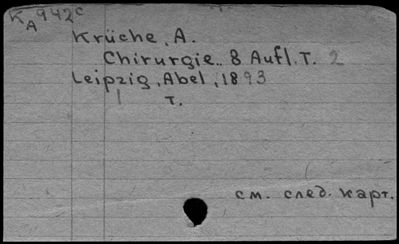 KA942c
Krüche, A.
Chirurgie.. 8 Aufl. T. 2
Leipzig, Abel, 1893
1 т.
см. след. карт.